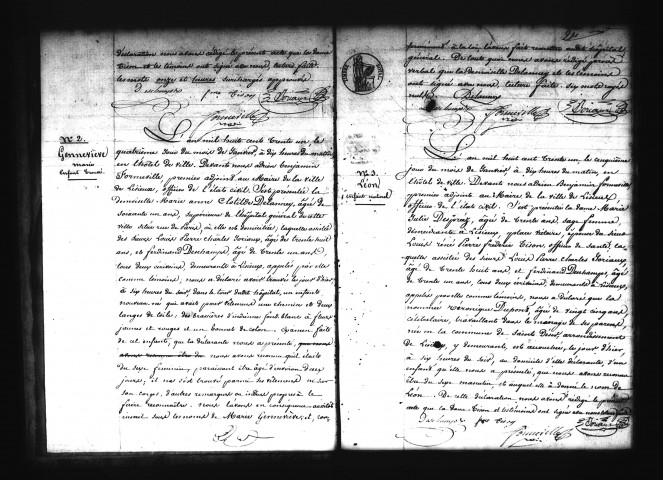 déclaration nous avons rédigé le présent acte que la dame
Bison et les témoins ont signé avec nous, lecture faite
les mots onze et heures surchargés approuvés
Deschamps fme Bison
Formeville
N° 2.
Genneviève
marie
Enfant trouvé
L'an mil huit cent trente un, le
quatrième jour du mois de Janvier, à dix heures du matin
en l'hôtel de ville. Devant nous adrien Benjamin
Formeville, premier adjoint au Maire de la ville
de Lisieux, officier de l'état civil. S'est présentée la
demoiselle Marie anne Clotilde Delaunay, âgée de
soixante un ans, supérieure de l'hôpital général de cette
ville située rue de Paris, où elle est domiciliée, laquelle assistée
des sieurs Louis Pierre Charles Soriaux, âgé de trente huit
ans, et ferdinand Deschamps, âgé de trente un ans,
tous deux écrivains, demeurants à Lisieux, appelés par elle
comme témoins, nous a déclaré avoir trouvé le jour d'hier
à six heures du soir, dans le tour dudit hôpital, un enfant
nouveau né qui avait pour vêtement une chemise et deux
langes de toile, des brassières d'indienne fond blanc à fleurs
jaunes et rouges et un bonnet de coton. Examen fait
de cet enfant, que la déclarante nous a présenté,
nous avons reconnu qu'il était
du sexe féminin, paraissant être âgé d'environ deux
jours; il ne s'est trouvé parmi ses vêtements ni sur
son corps, d'autres remarques ou indices propres à le
faire reconnaître. nous l'avons en conséquence
inscrit sous les noms de Marie Genneviève, et, con
présent à la loi, l'avons fait remettre audit hôpital
général. De tout quoi nous avons rédigé procès
verbal que la demoiselle Delaunay et les témoins
ont signé avec nous, lecture faite, six mots rayés
nuls. Delaunay
Deschamps
Formeville
N° 3.
Léon
enfant naturel
L'an mil huit cent trente un le cinquième
jour du mois de Janvier à dix heures du matin, en
l'hôtel de ville. Devant nous adrien Benjamin Formeville
premier adjoint au Maire de la ville de Lisieux
officier de l'état civil. S'est présentée la dame Marie
Julie Desprez, âgée de trente ans, sage femme,
demeurante à Lisieux, place victoire, épouse du sieur
Louis René Pierre frédéric Bison, officier de santé, la-
quelle assistée des sieurs Louis Pierre Charles Soriaux,
âgé de trente huit ans et ferdinand Deschamps, âgé
de trente un ans, tous deux écrivains, demeurants à Lisieux,
appelés par elle comme témoins, nous a déclaré que la
nommée Véronique Dupont, âgée de vingt cinq ans
célibataire, travaillant dans le ménage de ses parents
née en la commune de Saint Denis, arrondissement
de Lisieux, y demeurant, est accouchée, le jour d'hier
à six heures du soir, au domicile d'elle déclarante, d'un
enfant qu'elle nous a présenté, que nous avons reconnu
être du sexe masculin, et auquel elle a donné le nom de
Léon. De cette déclaration nous avons rédigé le présent
acte que la dame Bison et les témoins ont signé avec nous
Deschamps fme Bison
Formeville